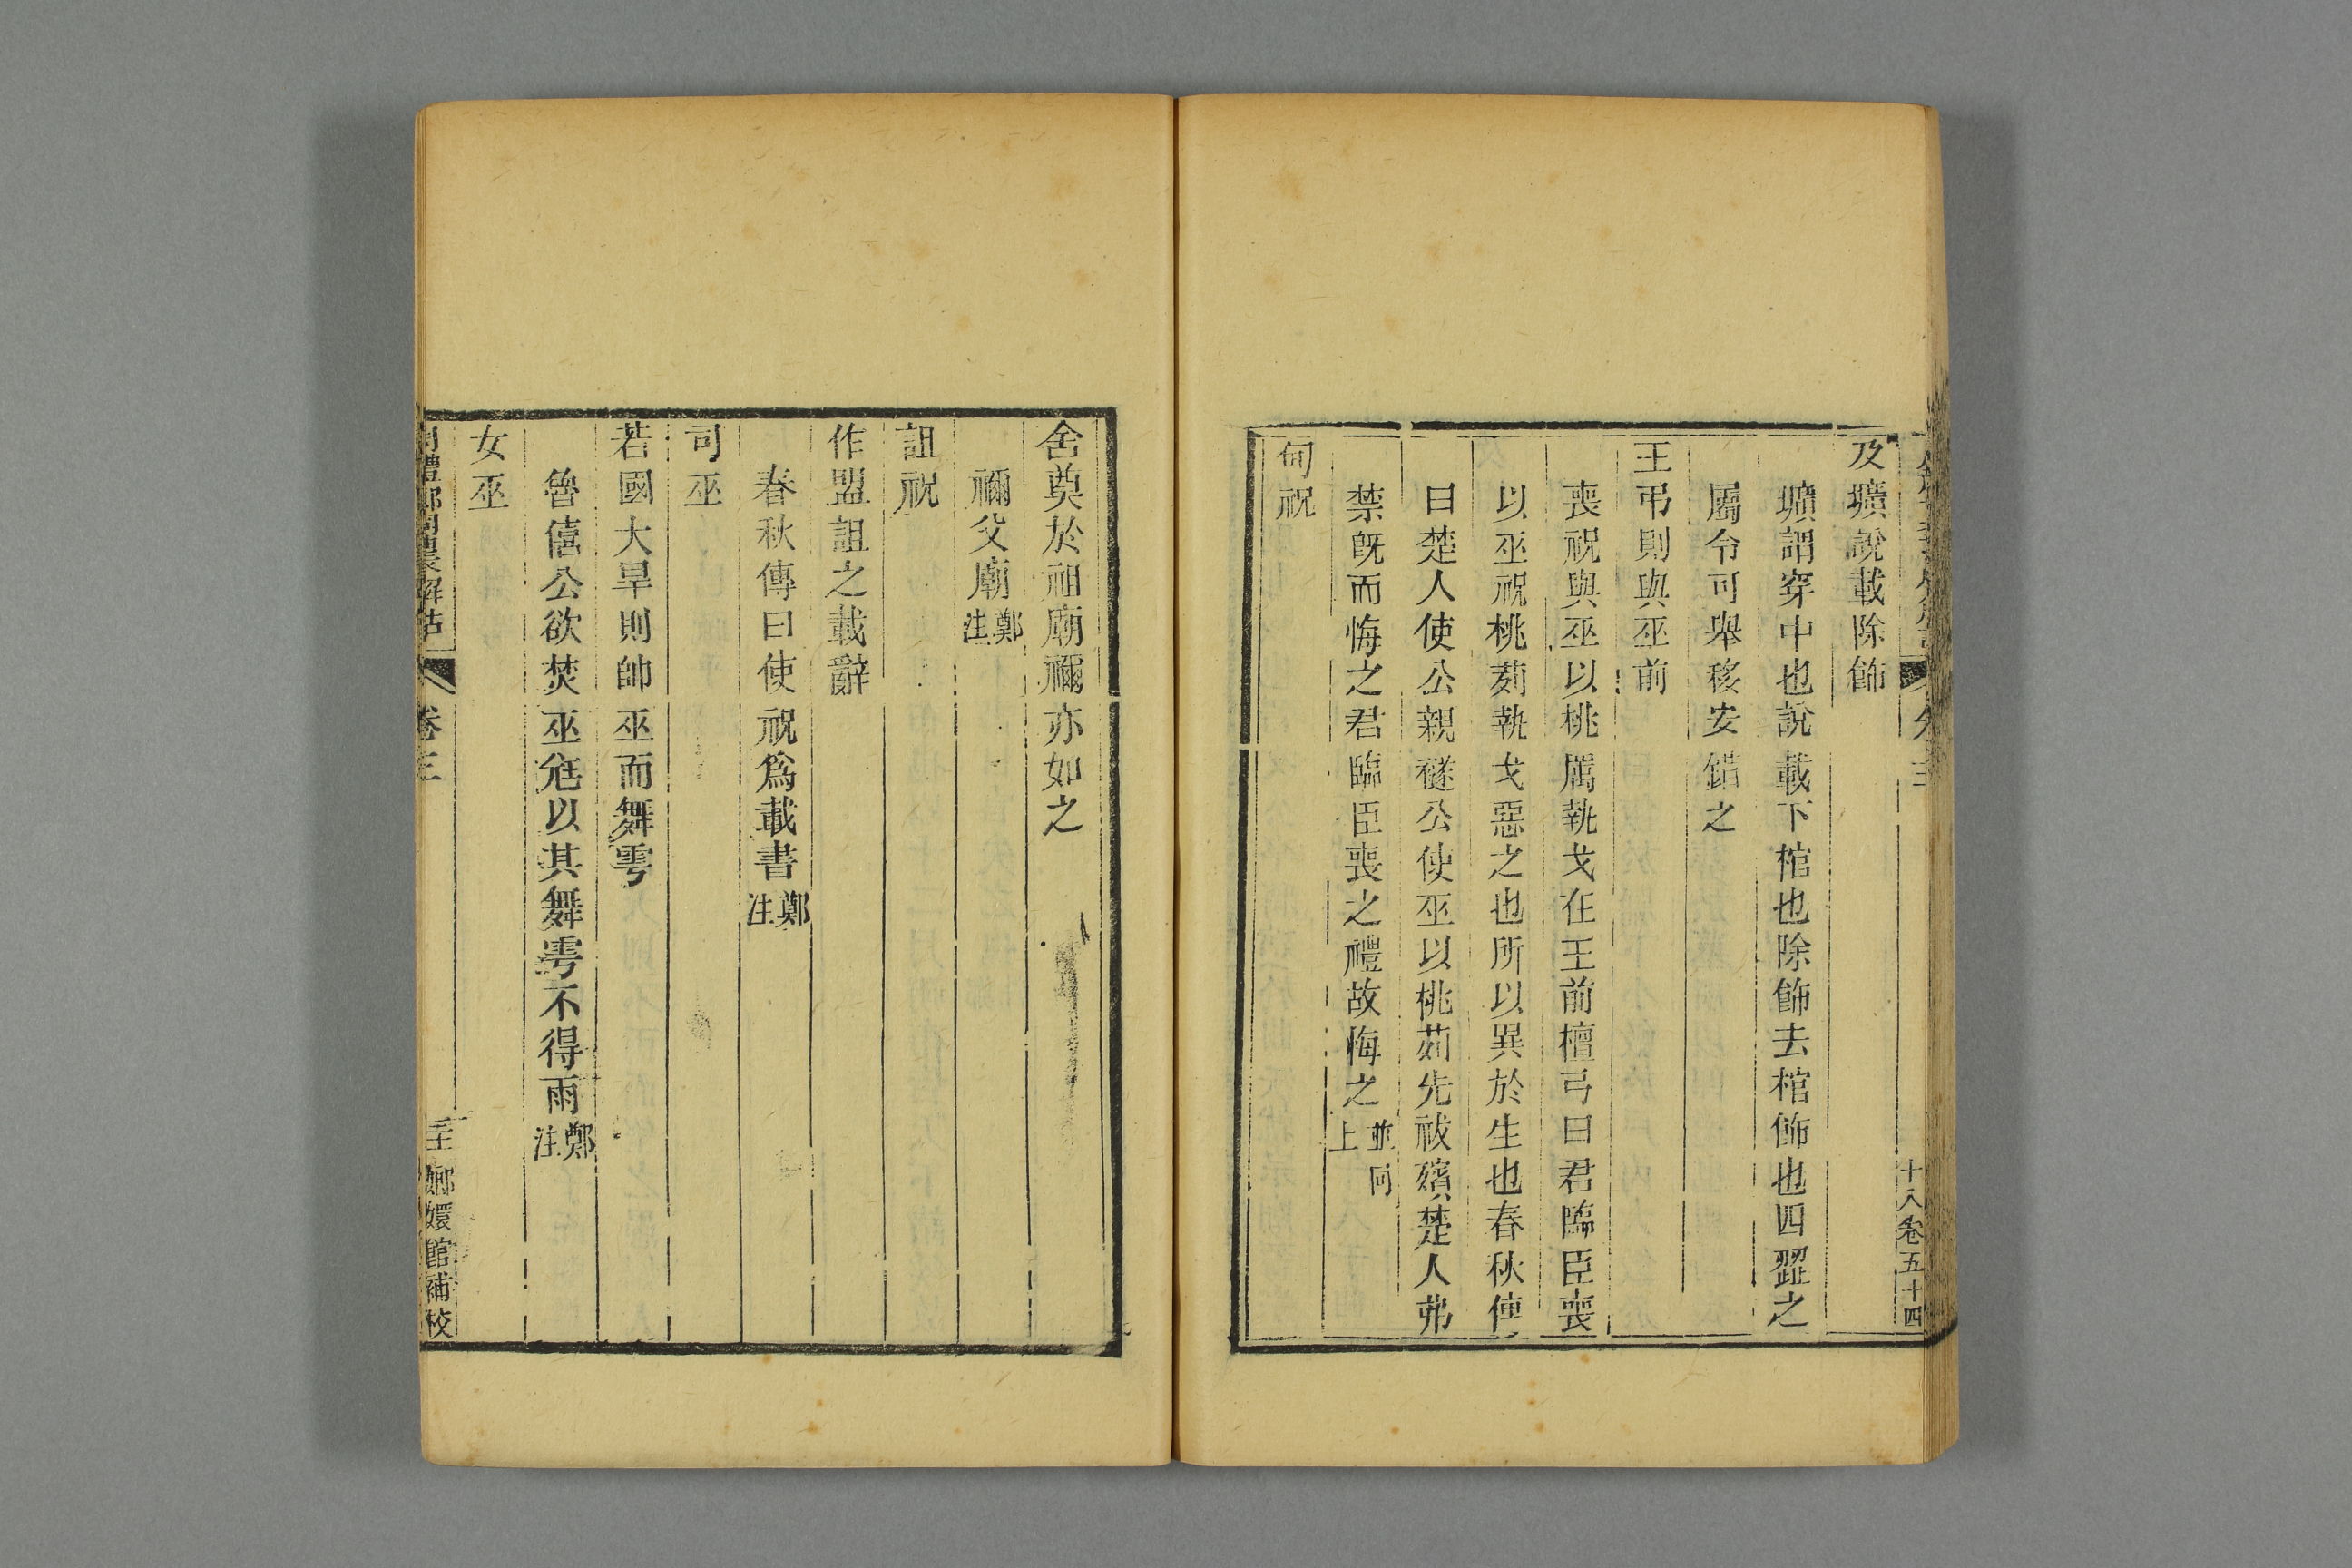 及壙說載除飾
壙謂穿中也說載下棺也除飾去棺飾也四歰之
屬令可舉移安錯之
王弔則與巫前
喪祝與巫以桃厲執戈在王前檀弓曰君臨臣喪
以巫祝桃茢執戈惡之也所以異於生也春秋傳
曰楚人使公親襚公使巫以桃茢先祓殯楚人弗
禁旣而悔之君臨臣喪之禮故悔之並同上
甸祝
十八卷五十四
舍奠於祖廟禰亦如之
禰父廟鄭注
詛祝
作盟詛之載辭
春秋傳曰使祝爲載書鄭注
司巫
若國大旱則帥巫而舞雩
魯僖公欲焚巫尪以其舞雩不得雨鄭注
女巫
周禮鄭司農解詁 卷三 嫏嬛館補校